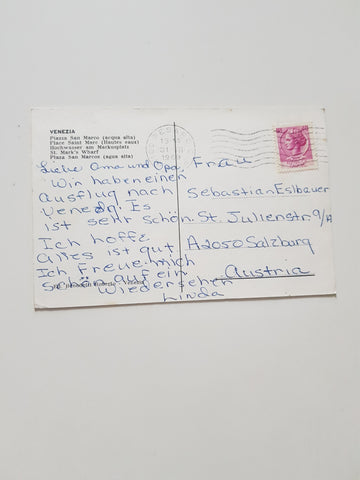 VENEZIA
Piazza San Marco (acqua alta)
Place Saint Marc (Hautes eaux)
Hochwasser am Markusplatz
St. Mark's Wharf
Plaza San Marcos (agua alta)
Liebe Oma und Opa,
Wir haben einen
Ausflug nach
Venedig. Es
ist sehr schön.
Ich hoffe
Alles ist gut.
Ich Freue mich
schon auf ein
Wiedersehen
Linda
Frau
Sebastian Eslbauer
St. Julienstr. 9/
A2050 Salzburg
Austria
Venezia